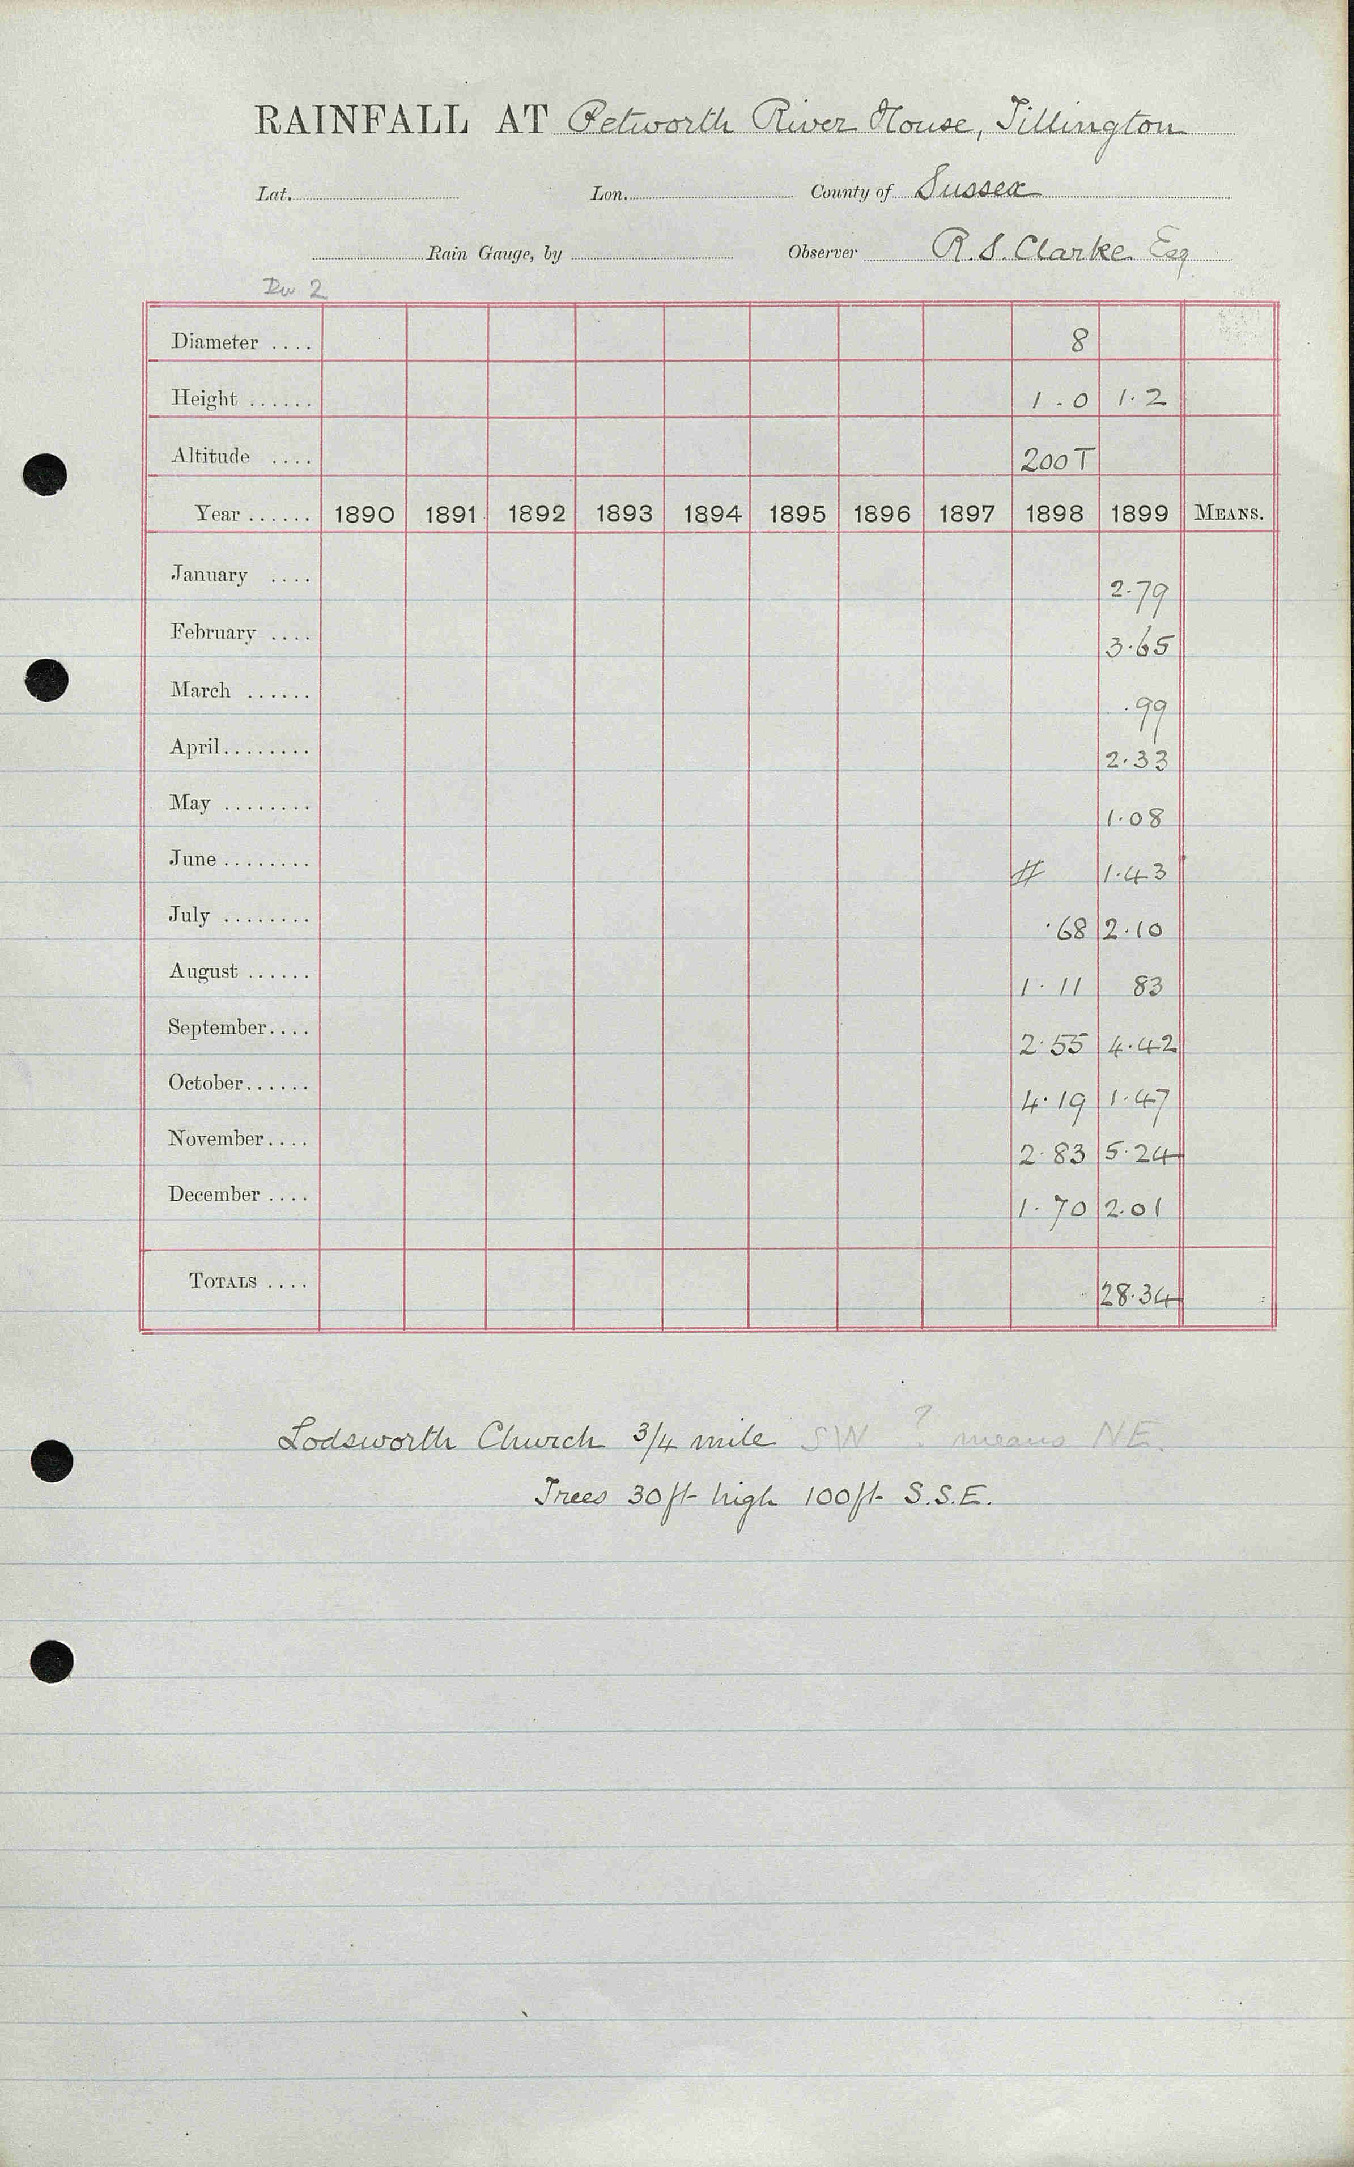 RAINFALL AT Petworth River House, Tillington
Lat. Lon. County of Sussex
Rain Gauge, by Observer R. S. Clarke Esq
Div 2
Diameter .... 8
Height ...... 1.0 1.2
Altitude .... 200T
Year ...... 1890 1891 1892 1893 1894 1895 1896 1897 1898 1899 MEANS.
January .... 2.79
February .... 3.65
March ...... .99
April ........ 2.33
May ........ 1.08
June ........ # 1.43
July ........ .68 2.10
August ...... 1.11 83
September .... 2.55 4.42
October ...... 4.19 1.47
November .... 2.83 5.24
December .... 1.70 2.01
TOTALS .... 28.34
Lodsworth Church 3/4 mile SW ? means NE.
Trees 30ft high 100ft S.S.E.